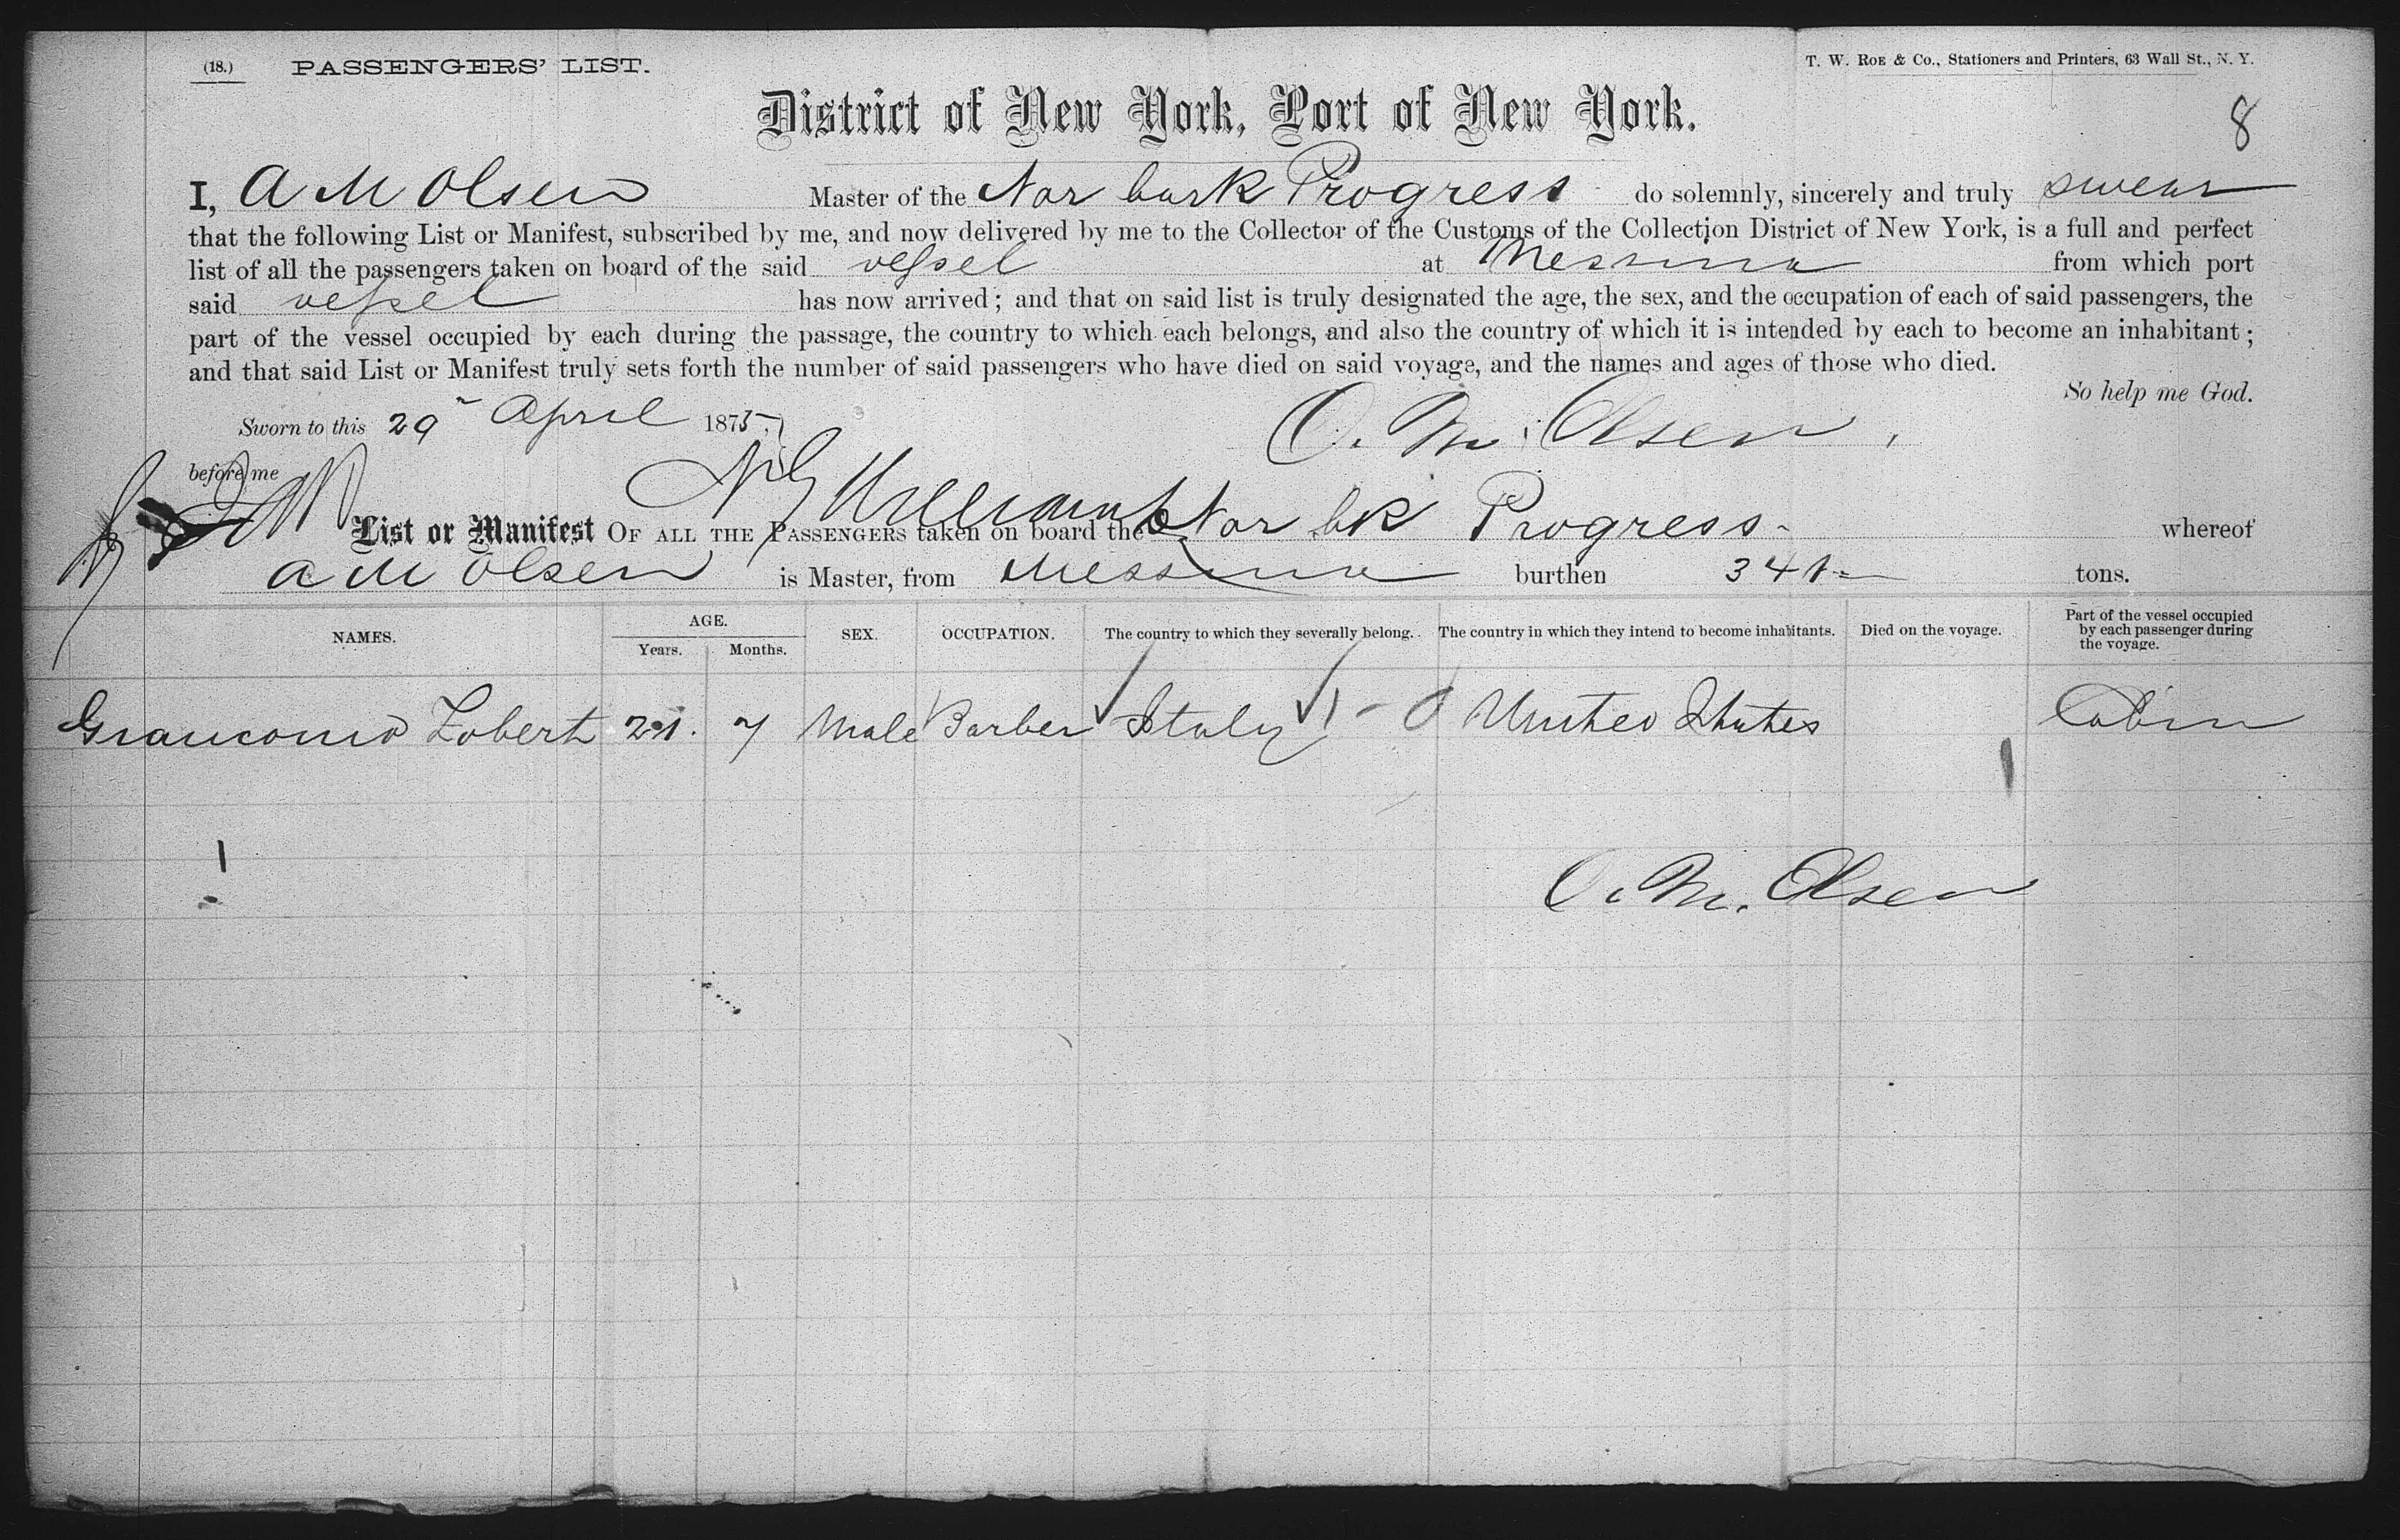 (18.) PASSENGERS' LIST. T. W. ROE & Co., Stationers and Printers, 63 Wall St., N. Y.
District of New York, Port of New York.
8
I, A M Olsen Master of the Nor bark Progress do solemnly, sincerely and truly swear
that the following List or Manifest, subscribed by me, and now delivered by me to the Collector of the Customs of the Collection District of New York, is a full and perfect
list of all the passengers taken on board of the said vessel at Messina from which port
said vessel has now arrived; and that on said list is truly designated the age, the sex, and the occupation of each of said passengers, the
part of the vessel occupied by each during the passage, the country to which each belongs, and also the country of which it is intended by each to become an inhabitant;
and that said List or Manifest truly sets forth the number of said passengers who have died on said voyage, and the names and ages of those who died.
So help me God.
Sworn to this 29 April 1875 O. M. Olsen
before me
List or Manifest OF ALL THE PASSENGERS taken on board the Nor bk Progress whereof
A M Olsen is Master, from Messina burthen 341 tons.
NAMES. AGE. Years. Months. SEX. OCCUPATION. The country to which they severally belong. The country in which they intend to become inhabitants. Died on the voyage. Part of the vessel occupied by each passenger during the voyage.
Lobert 21. 7 Male Barber Italy United States Cabin
1
O. M. Olsen